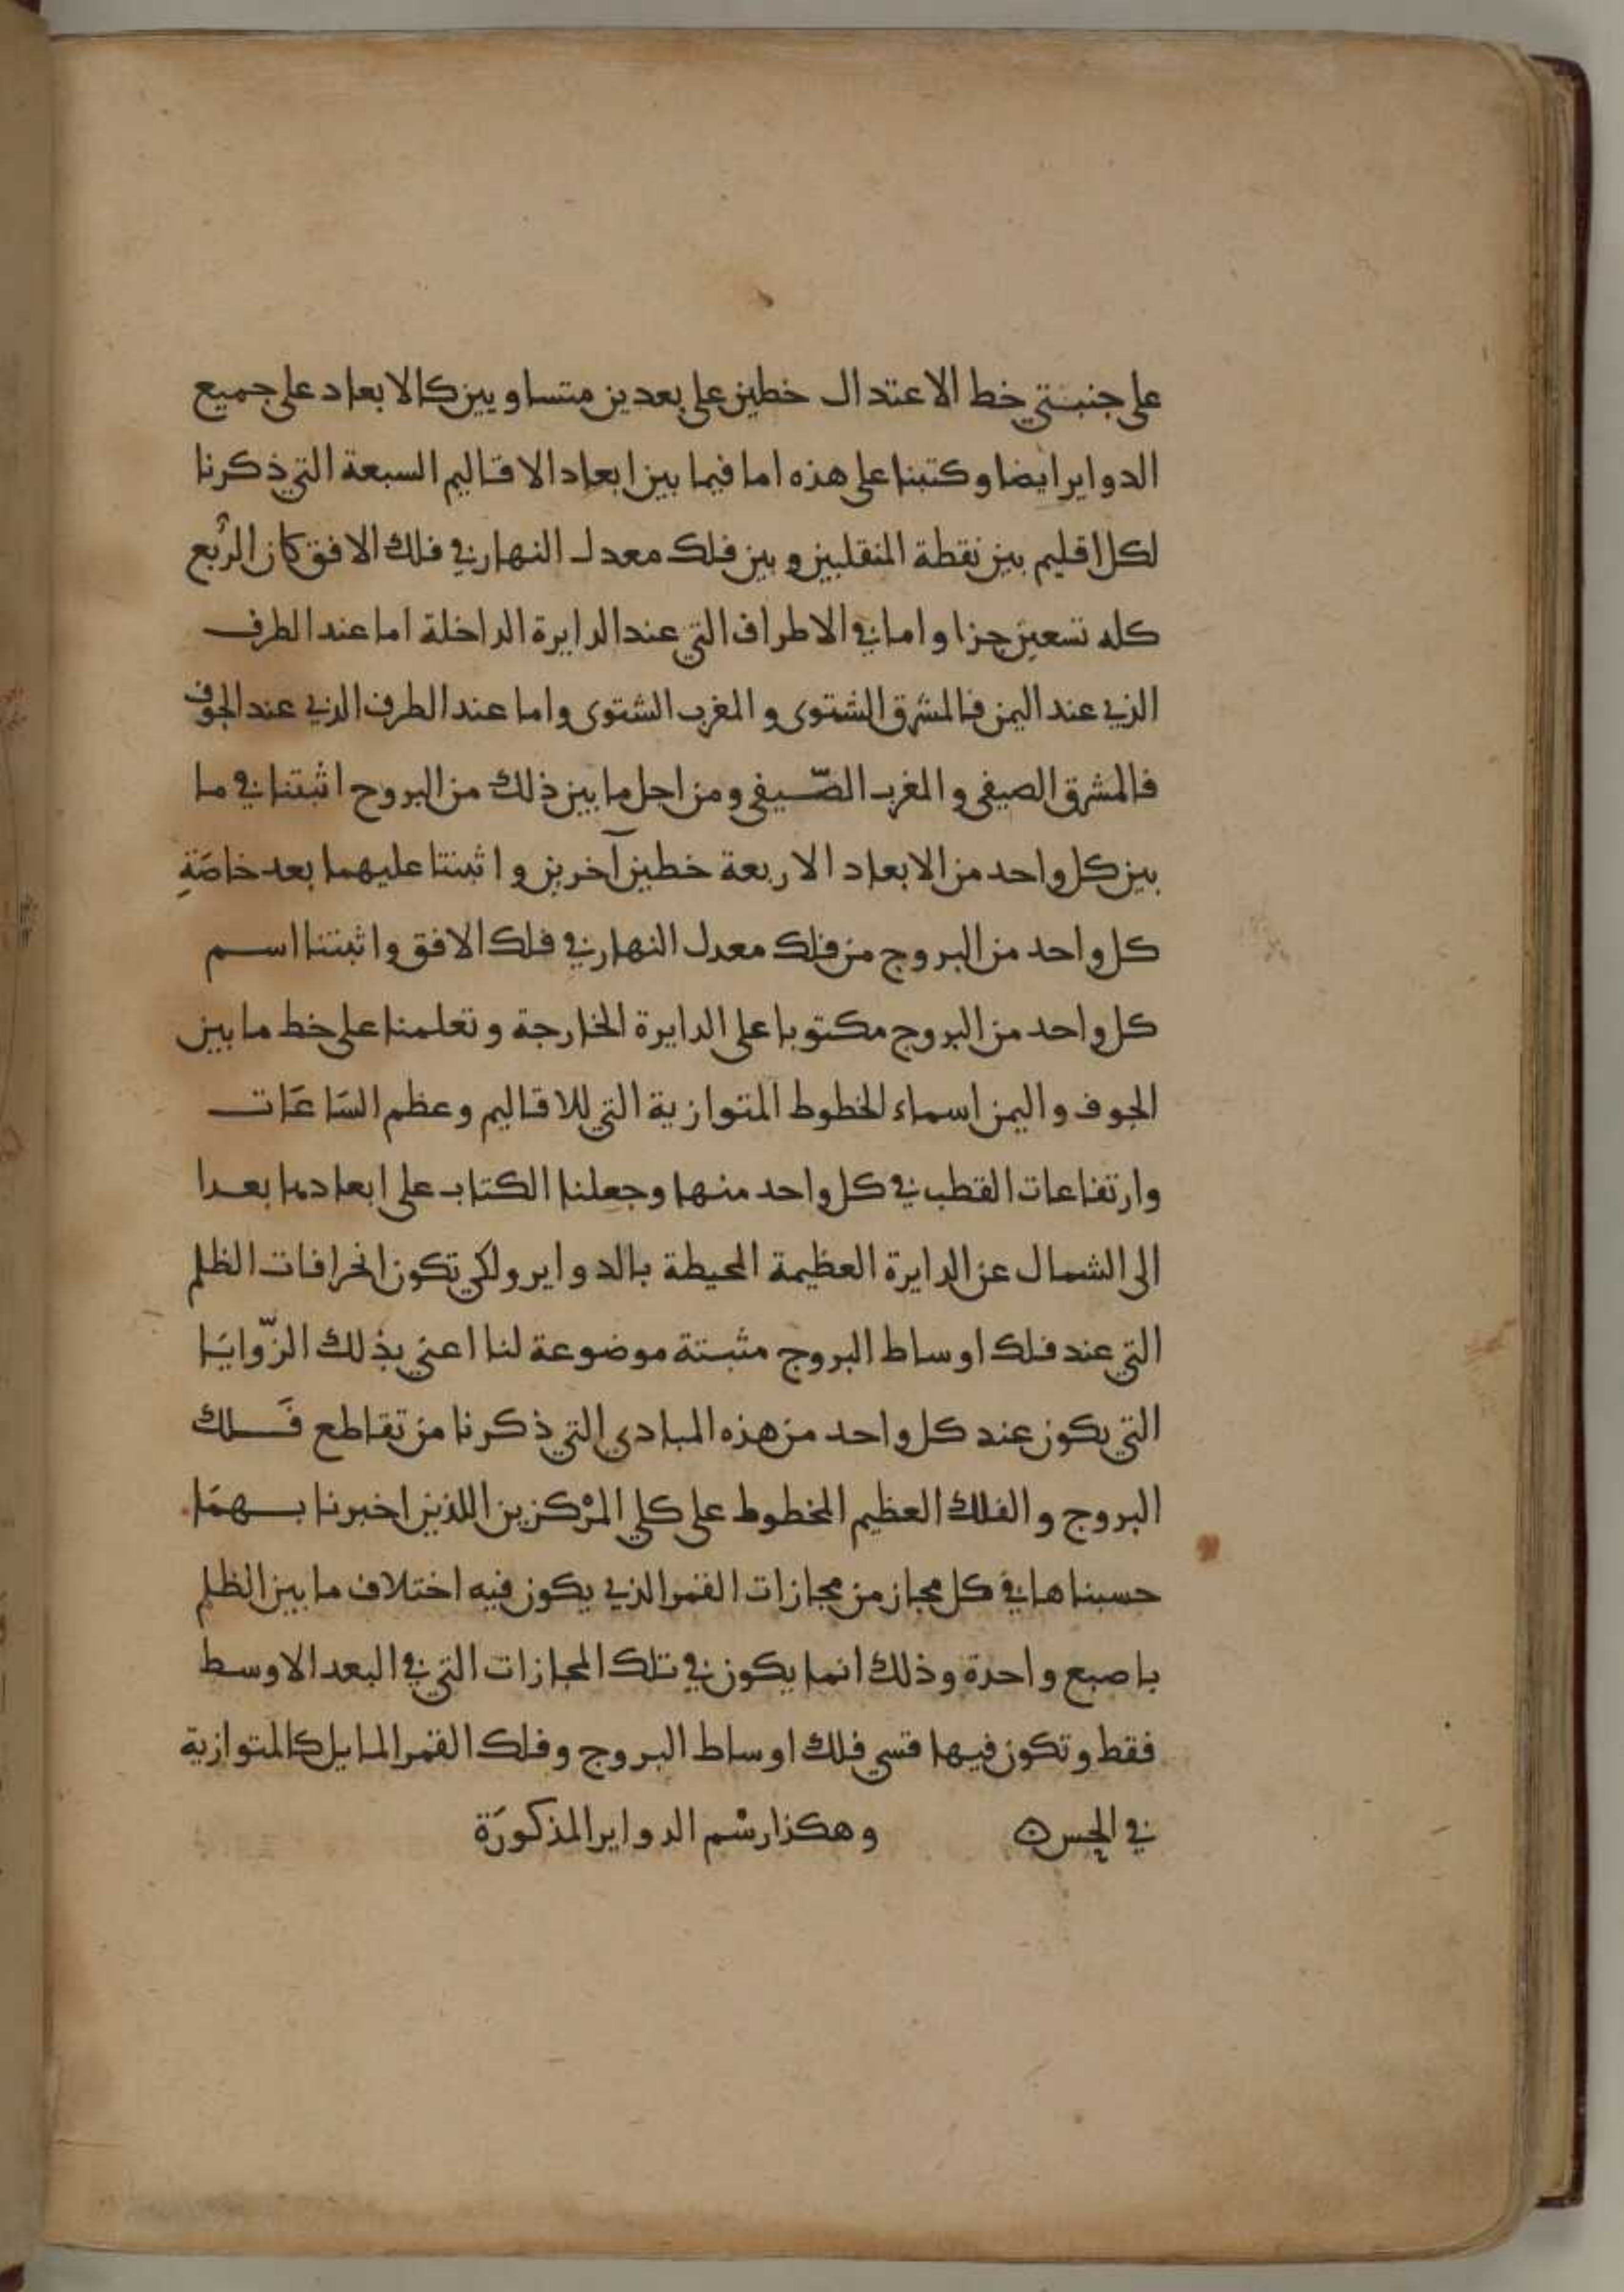 على جنبتي خط الاعتدال خطين على بعدين متساويين كالابعاد على جميع
الدواير ايضا وكتبنا على هذه اما فيما بين ابعاد الاقاليم السبعة التي ذكرنا
لكل اقليم بين نقطة المنقلبين وبين فلك معدل النهار في فلك الافق كان الرُبع
كله تسعين جزا واما في الاطراف التي عند الدايرة الداخلة اما عند الطرف
الذي عند اليمن فالمشرق الشتوى والمغرب الشتوى واما عند الطرف الذي عند الجوف
فالمشرق الصيفى والمغرب الصّيفى ومن اجل ما بين ذلك من البروج اثبتنا في ما
بين كل واحد من الابعاد الاربعة خطين آخرين واثبتنا عليهما بعد خاصَةِ
كل واحد من البروج من فلك معدل النهار في فلك الافق واثبتنا اسم
كل واحد من البروج مكتوبا على الدايرة الخارجة وتعلمنا على خط ما بين
الجوف واليمن اسماء الخطوط المتوازية التي للاقاليم وعظم السَاعَات
وارتفاعات القطب في كل واحد منها وجعلنا الكتاب على ابعادها بعدا
الى الشمال عن الدايرة العظيمة المحيطة بالدواير ولكي تكون انحرافات الظلم
التي عند فلك اوساط البروج مثبتة موضوعة لنا اعني بذلك الزّوايَا
التي يكون عند كل واحد من هذه المبادى التي ذكرنا من تقاطع فَلك
البروج والفلك العظيم المخطوط على كلي المرْكزين اللذين اخبرنا بهمَا
حسبناها في كل مجاز من مجازات القمر الذي يكون فيه اختلاف ما بين الظلم
باصبع واحدة وذلك انما يكون في تلك المجازات التي في البعد الاوسط
فقط وتكون فيها قسي فلك اوساط البروج وفلك القمر المايل كالمتوازية
في الحس ن وهكذا رسْم الدواير المذكورَة